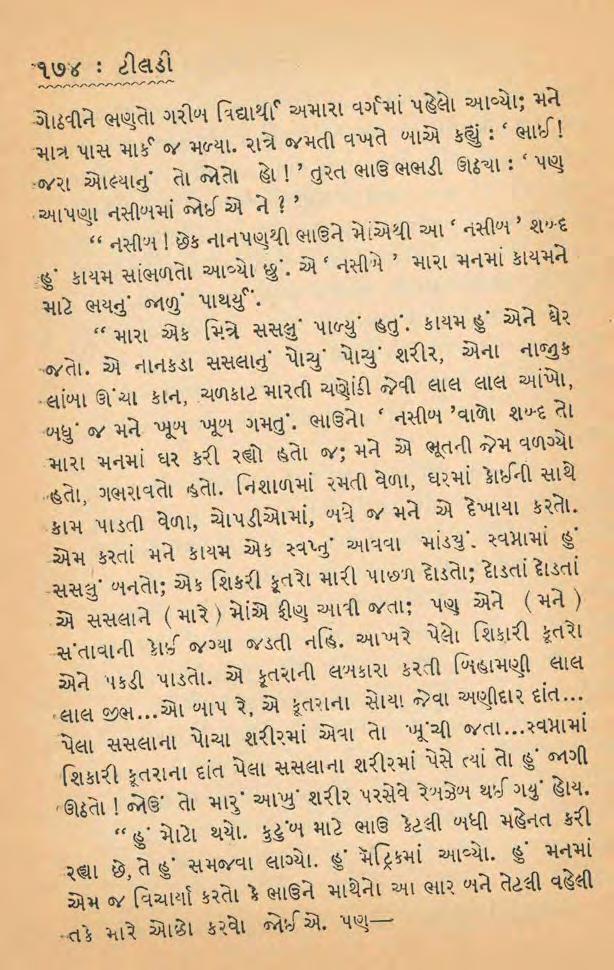 ૧૭૪ : ટીલડી
ગોઠવીને ભણતો ગરીબ વિદ્યાર્થી અમારા વર્ગમાં પહેલો આવ્યો; મને
માત્ર પાસ માર્ક જ મળ્યા. રાત્રે જમતી વખતે બાએ કહ્યું : ‘ ભાઈ !
જરા ઓલ્યાનું તો જોતો હો ! ’ તુરત ભાઉ ભભડી ઊઠ્યા : ‘ પણ
આપણા નસીબમાં જોઈ એ ને ? ’
“ નસીબ ! છેક નાનપણથી ભાઉને મોંએથી આ ‘ નસીબ ’ શબ્દ
હું કાયમ સાંભળતો આવ્યો છું. એ ‘ નસીબે ’ મારા મનમાં કાયમને
માટે ભયનું જાળું પાથર્યું.
“ મારા એક મિત્રે સસલું પાળ્યું હતું. કાયમ હું એને ઘેર
જતો. એ નાનકડા સસલાનું પોચું પોચું શરીર, એના નાજુક
લાંબા ઊંચા કાન, ચળકાટ મારતી ચણોઠી જેવી લાલ લાલ આંખો,
બધું જ મને ખૂબ ખૂબ ગમતું. ભાઉનો ‘ નસીબ ’વાળો શબ્દ તો
મારા મનમાં ઘર કરી રહ્યો હતો જ; મને એ ભૂતની જેમ વળગ્યો
હતો, ગભરાવતો હતો. નિશાળમાં રમતી વેળા, ઘરમાં કોઈની સાથે
કામ પાડતી વેળા, ચોપડીઓમાં, બધે જ મને એ દેખાયા કરતો.
એમ કરતાં મને કાયમ એક સ્વપ્નું આવવા માંડ્યું. સ્વપ્નામાં હું
સસલું બનતો; એક શિકરી કૂતરો મારી પાછળ દોડતો; દોડતાં દોડતાં
એ સસલાને ( મારે ) મોંએ ફીણ આવી જતા; પણ એને ( મને )
સંતાવાની કોઈ જગ્યા જડતી નહિ. આખરે પેલો શિકારી કૂતરો
એને પકડી પાડતો. એ કૂતરાની લબકારા કરતી બિહામણી લાલ
લાલ જીભ...ઓ બાપ રે, એ કૂતરાના સોયા જેવા અણીદાર દાંત...
પેલા સસલાના પોચા શરીરમાં એવા તો ખૂંચી જતા...સ્વપ્નામાં
શિકારી કૂતરાના દાંત પેલા સસલાના શરીરમાં પેસે ત્યાં તો હું જાગી
ઊઠતો ! જોઉં તો મારું આખું શરીર પરસેવે રેબઝેબ થઈ ગયું હોય.
“ હું મોટો થયો. કુટુંબ માટે ભાઉ કેટલી બધી મહેનત કરી
રહ્યા છે, તે હું સમજવા લાગ્યો. હું મૅટ્રિકમાં આવ્યો. હું મનમાં
એમ જ વિચાર્યા કરતો કે ભાઉને માથેનો આ ભાર બને તેટલી વહેલી
તકે મારે ઓછો કરવો જોઈ એ. પણ—